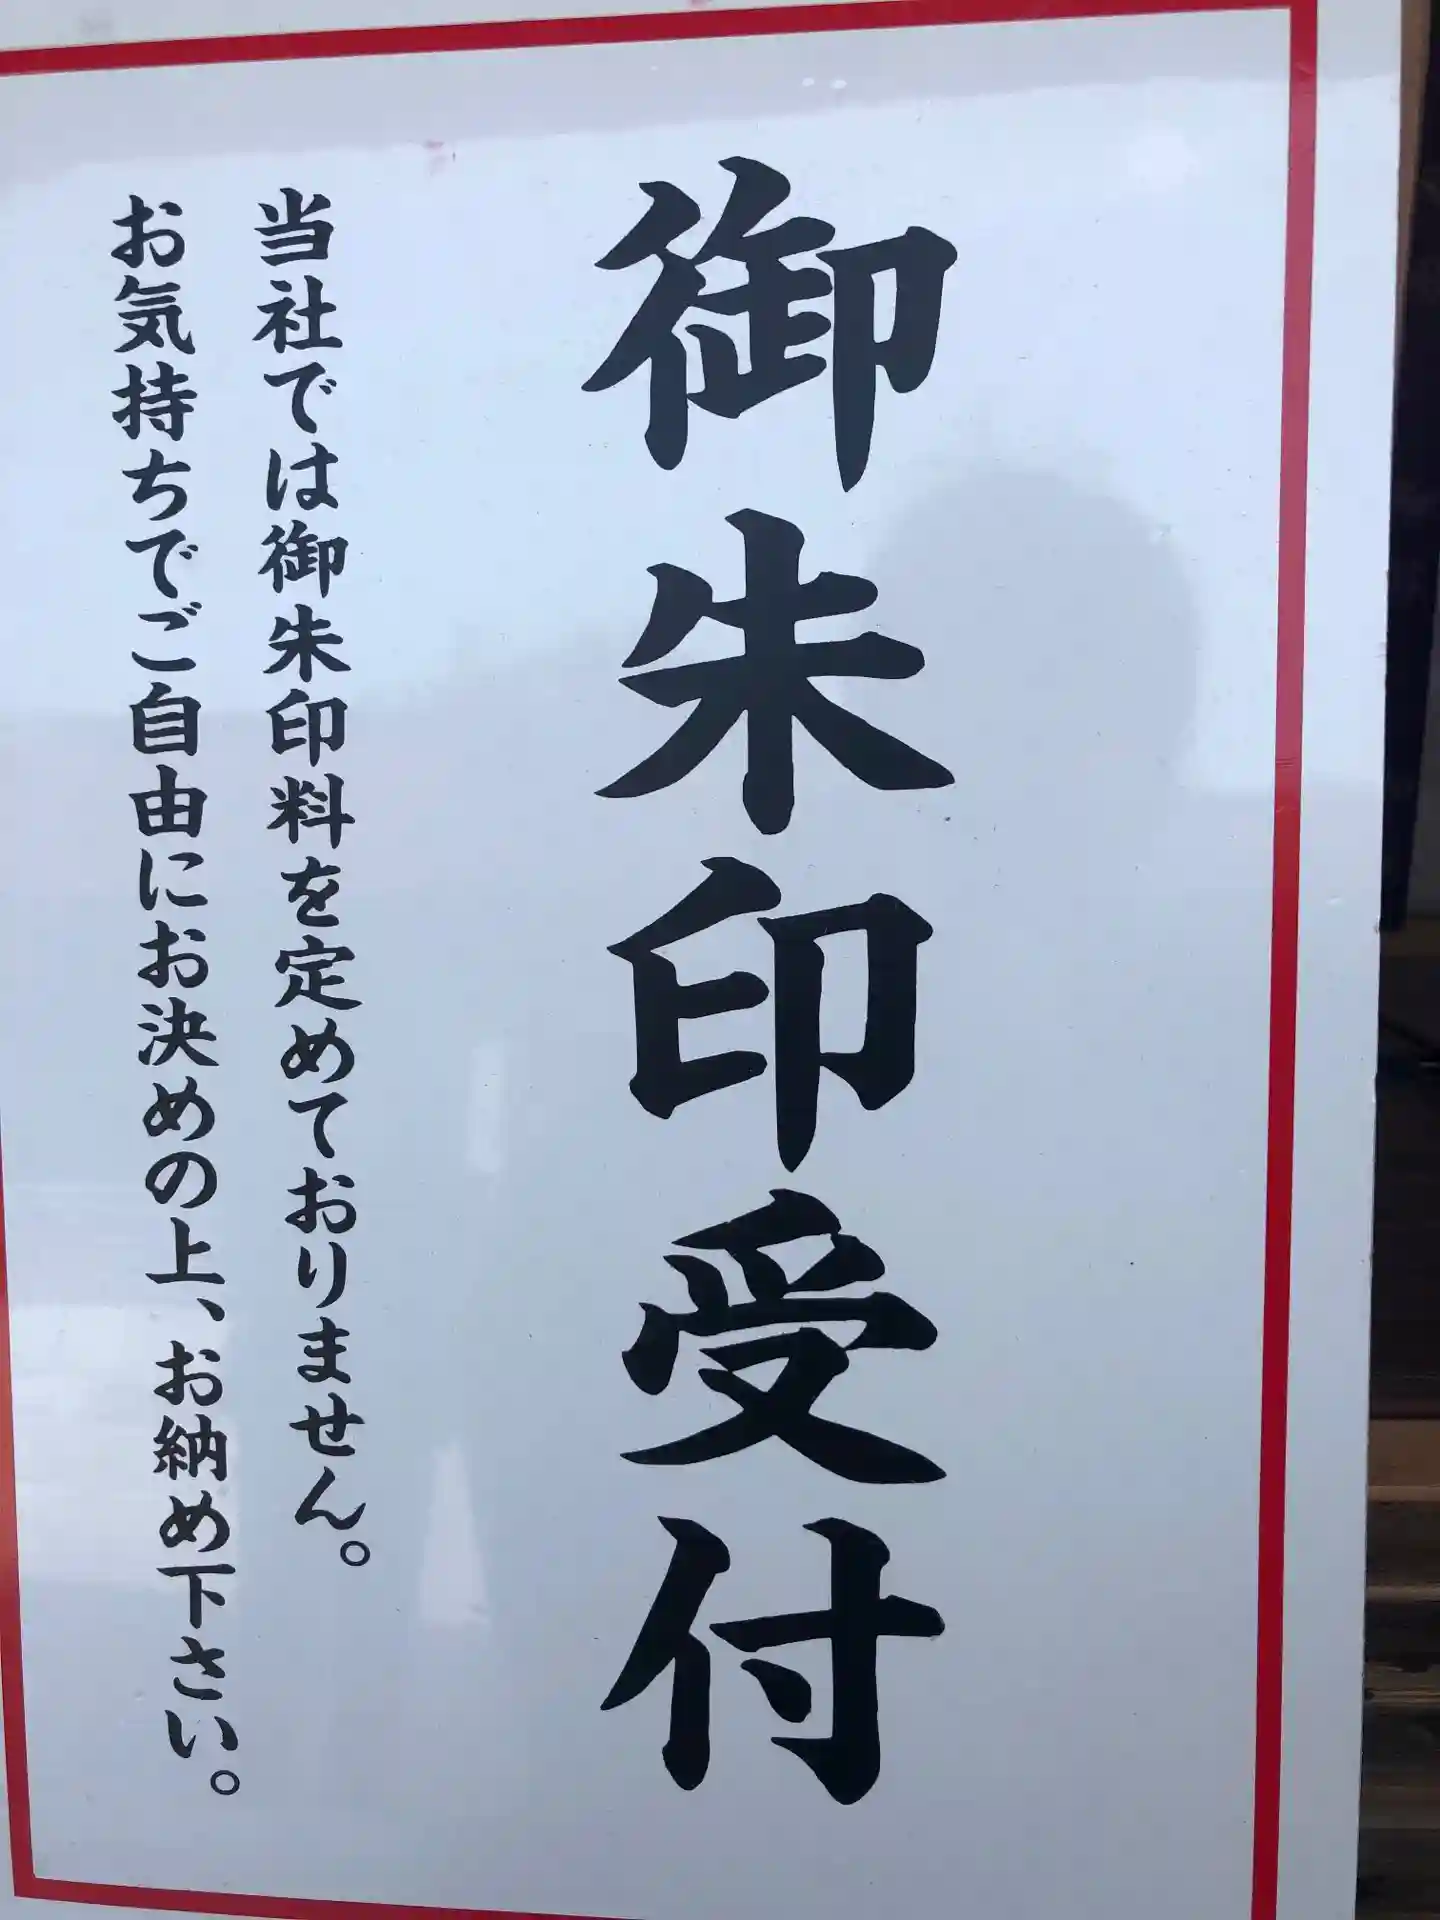 御朱印受付
当社では御朱印料を定めておりません。
お気持ちでご自由にお決めの上、お納め下さい。